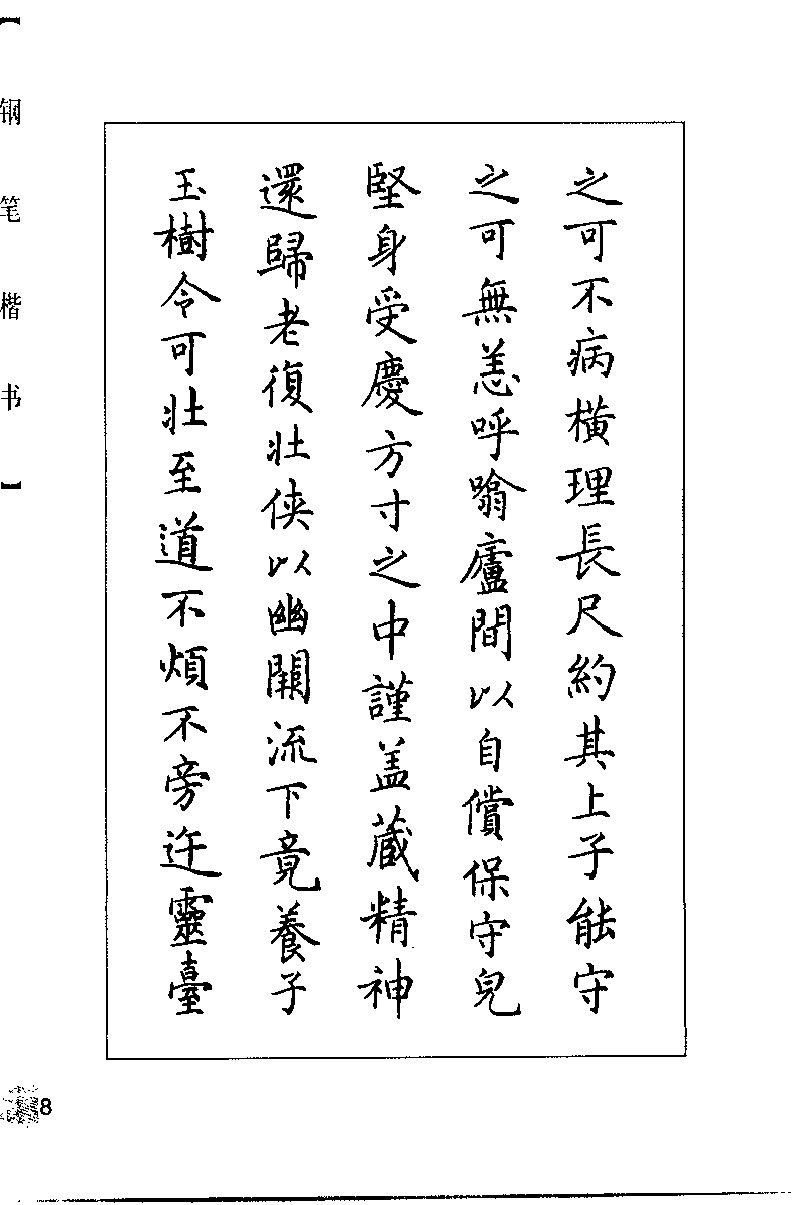 之可不病橫理長尺約其上子能守
之可無恙呼噏廬間以自償保守皃
堅身受慶方寸之中謹盖藏精神
還歸老復壯俠以幽闕流下竟養子
玉樹令可壯至道不煩不旁迕靈臺
【钢笔楷书】
8